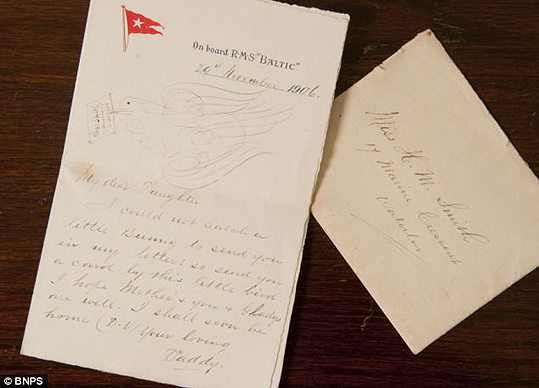 On board R·M·S "BALTIC"
29th November 1906.
My dear Daughter
I could not catch a
little Bunny to send you
in my letter so send you
a card by this little bird
I hope Mother & you & Gladys
are well. I shall soon be
home (D.V) Your loving
Daddy
Miss H. M. Smith
17 Marine Crescent
Waterloo
© BNPS